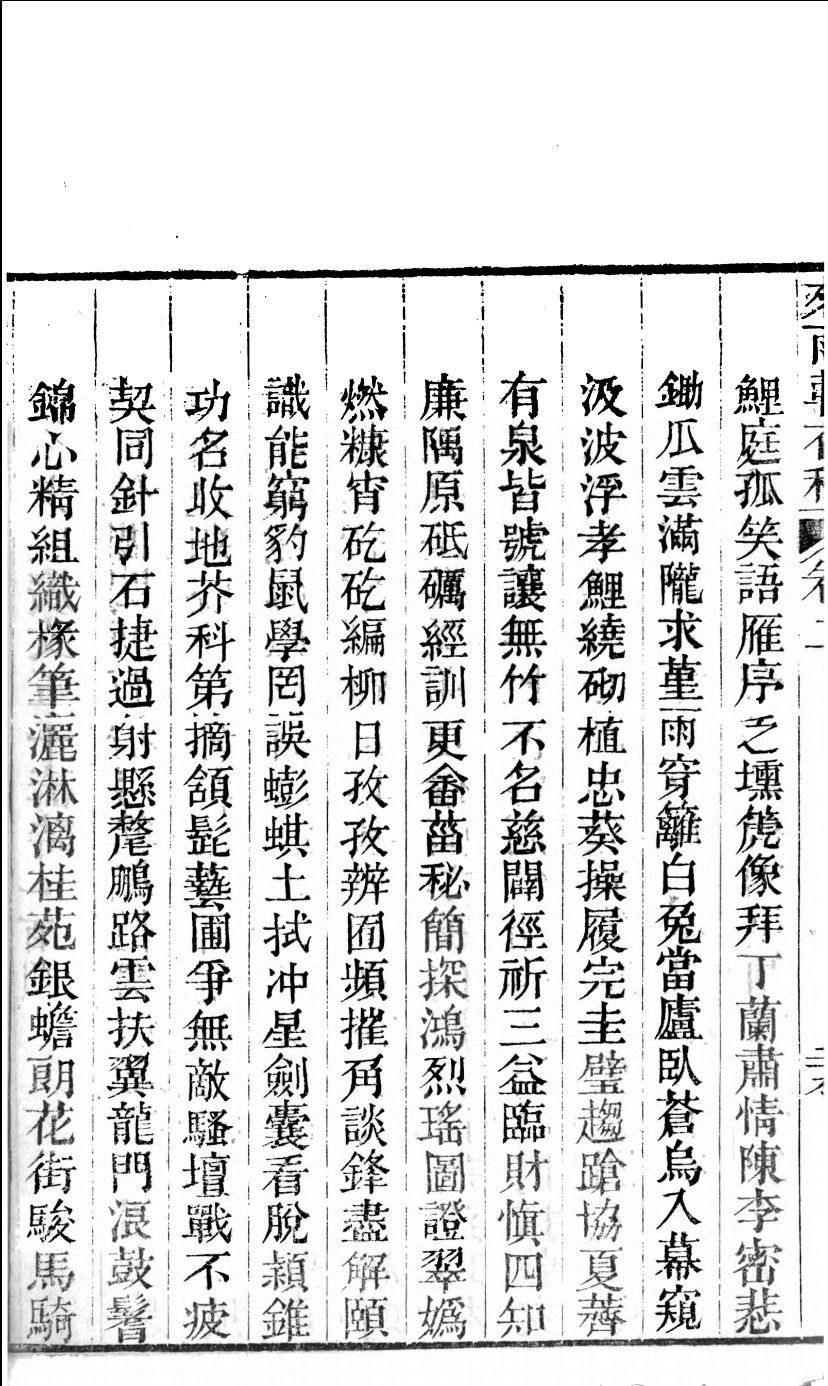 鯉庭孤笑語雁序乏壎箎像拜丁蘭肅情陳李密悲
鋤瓜雲滿隴求堇雨穿籬白兔當廬臥蒼烏入幕窺
汲波浮孝鯉繞砌植忠葵操履完圭璧趨蹌協夏薺
有泉皆號讓無竹不名慈闢徑祈三益臨財愼四知
廉隅原砥礪經訓更畬菑秘簡探鴻烈瑤圖證翠嬀
燃糠宵矻矻編柳日孜孜辨囿頻摧角談鋒盡解頤
識能窮豹鼠學罔誤蟛蜞土拭冲星劍囊看脫穎錐
功名收地芥科第摘頷髭藝圃爭無敵騷壇戰不疲
契同針引石捷過射懸氂鵬路雲扶翼龍門浪鼓鬐
錦心精組織椽筆灑淋漓桂苑銀蟾朗花街駿馬騎